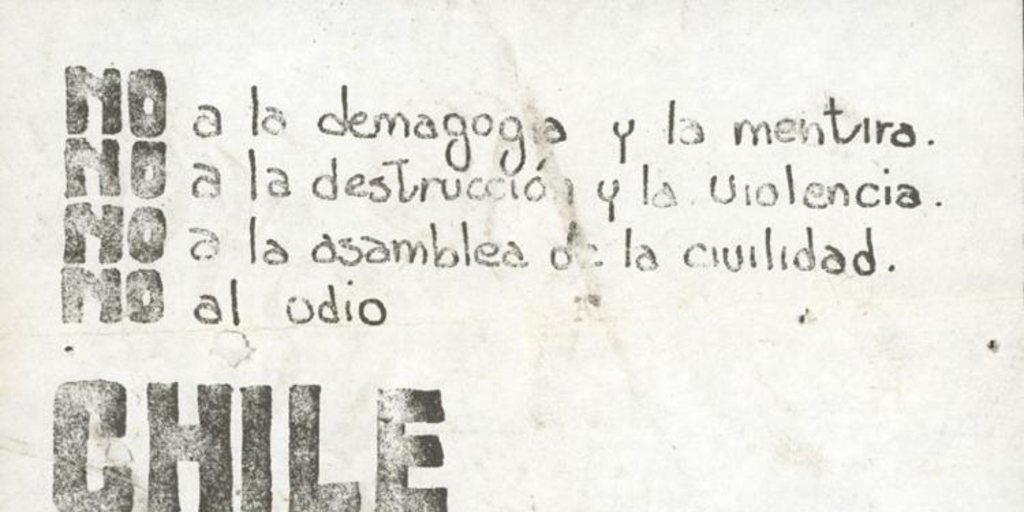 NO a la demagogia y la mentira.
NO a la destrucción y la violencia.
NO a la asamblea de la civilidad.
NO al odio
CHILE